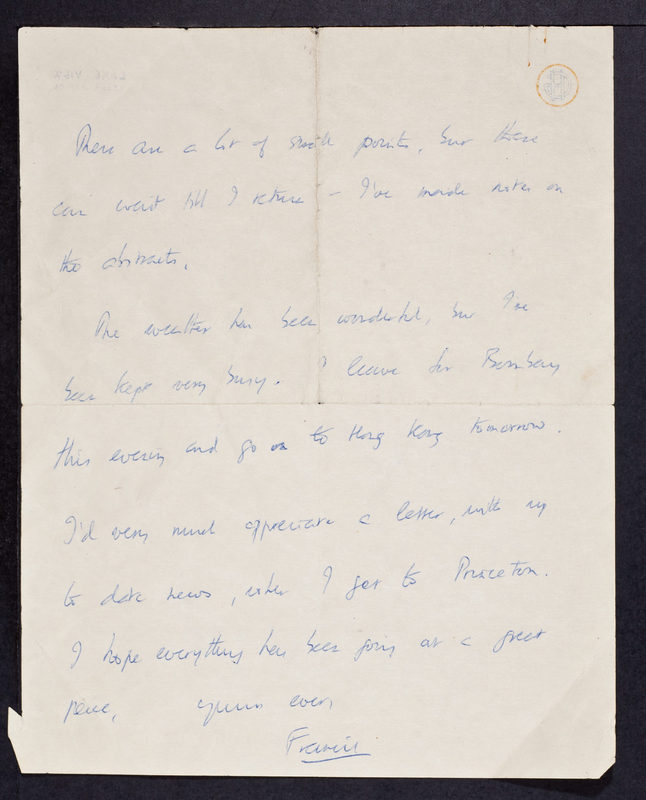 There are a lot of small points, but these
can wait till I return – I've made notes on
the abstracts.
The weather has been wonderful, but I've
been kept very busy. I leave for Bombay
this evening and go on to Hong Kong tomorrow.
I'd very much appreciate a letter, with up
to date news, when I get to Princeton.
I hope everything has been going at a great
pace,   yours ever
Francis